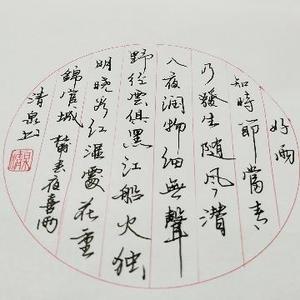 好雨
知時節當春
乃發生随风潜
入夜润物细無聲
野径雲俱黑江船火独
明晓看红湿處花重
錦官城 杜甫春夜喜雨
清泉书